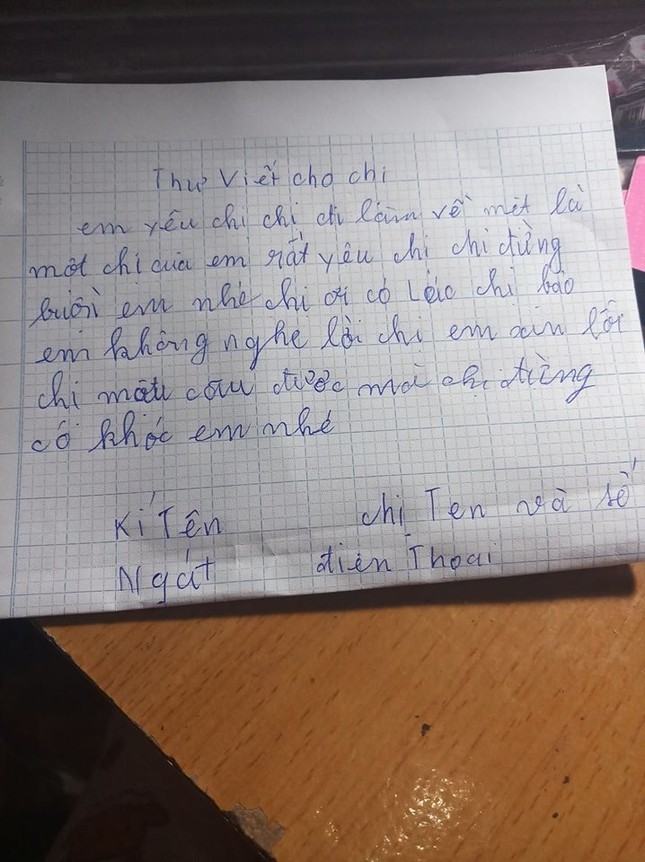 Thư Viết cho chi
em yêu chi chi đi làm về mêt là
môt chi của em rất yêu chi chi đừng
buồn em nhé chi ơi có Lúc chi bảo
em không nghe lời chi em xin lỗi
chi môtu câu được mà chi đừng
có khóc em nhé
Kí Tên chị Ten và số
Ngát điên Thoai